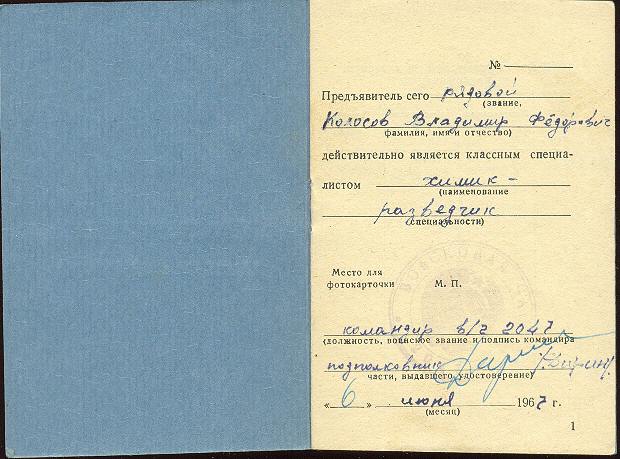 №
Предъявитель сего рядовой
(звание,
Колосов Владимир Фёдорович
фамилия, имя и отчество)
действительно является классным специа-
листом химик-
(наименование
разведчик
специальности)
Место для
фотокарточки М. П.
командир в/ч 2047
(должность, воинское звание и подпись командира
подполковник
части, выдавшего удостоверение)
« 6 » июня 1967 г.
(месяц)
1